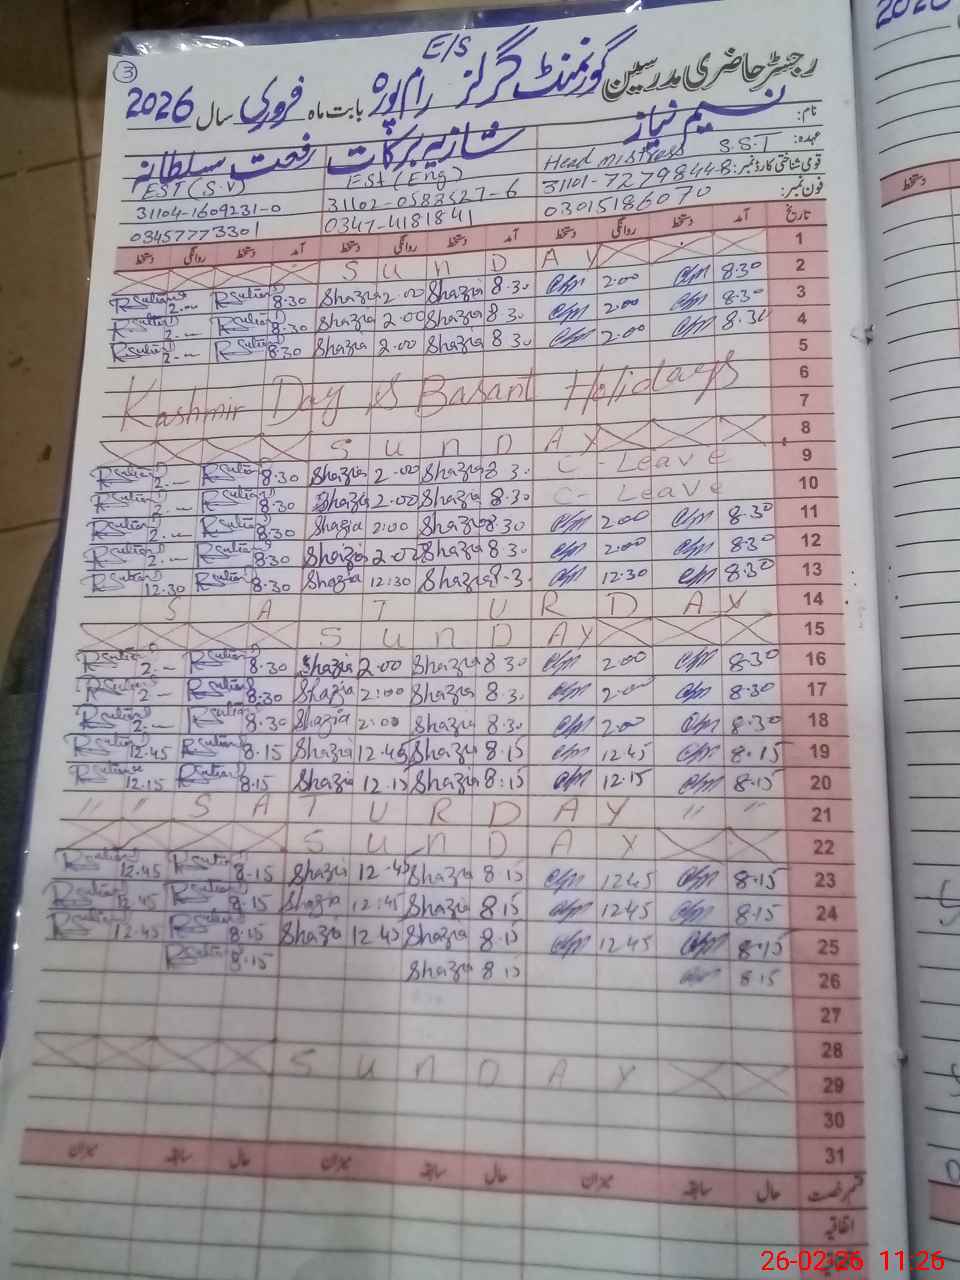 3
E/S
رجسٹر حاضری مدرسین گورنمنٹ گرلز رام پورہ بابت ماہ فروری سال 2026
نام: نسیم نیاز شازیہ برکات رفعت سلطانہ
عہدہ: Head mistress S.S.T Est (Eng) EST (S.V)
قومی شناختی کارڈ نمبر: 31101-7279844-8 31102-0583527-6 31104-1609231-0
فون نمبر: 03015186070 0347-4181841 03457773301
تاریخ آمد دستخط روانگی دستخط آمد دستخط روانگی دستخط آمد دستخط روانگی دستخط
1 SUNDAY
2 8.30 2.00 8.30 Shazia 2.00 Shazia 8.30 2.—
3 8.30 2.00 8.30 Shazia 2.00 Shazia 8.30 2.—
4 8.30 2.00 8.30 Shazia 2.00 Shazia 8.30 2.—
5
6 Kashmir Day & Basant Holidays
7
8 SUNDAY
9 C-Leave 8.30 Shazia 2.00 Shazia 8.30 2.—
10 C-Leave 8.30 Shazia 2.00 Shazia 8.30 2.—
11 8.30 2.00 8.30 Shazia 2:00 Shazia 8.30 2.—
12 8.30 2.00 8.30 Shazia 2.00 Shazia 8.30 2.—
13 8.30 12.30 8.30 Shazia 12:30 Shazia 8.30 12.30
14 SATURDAY
15 SUNDAY
16 8.30 2.00 8.30 Shazia 2.00 Shazia 8.30 2.—
17 8.30 2.00 8.30 Shazia 2:00 Shazia 8.30 2—
18 8.30 2.00 8.30 Shazia 2:00 Shazia 8.30 2.—
19 8.15 12.45 8.15 Shazia 12.45 Shazia 8.15 12.45
20 8.15 12.15 8.15 Shazia 12.15 Shazia 8.15 12.15
21 " " SATURDAY " "
22 SUNDAY
23 8.15 1245 8.15 Shazia 12.45 Shazia 8.15 12.45
24 8.15 1245 8.15 Shazia 12:45 Shazia 8.15 12.45
25 8.15 1245 8.15 Shazia 12.45 Shazia 8.15 12.45
26 8.15 8.15 Shazia 8.15
27
28
29 SUNDAY
30
31
قسم رخصت حال سابقہ میزان حال سابقہ میزان حال سابقہ میزان
اتفاقیہ
26-02-26 11:26